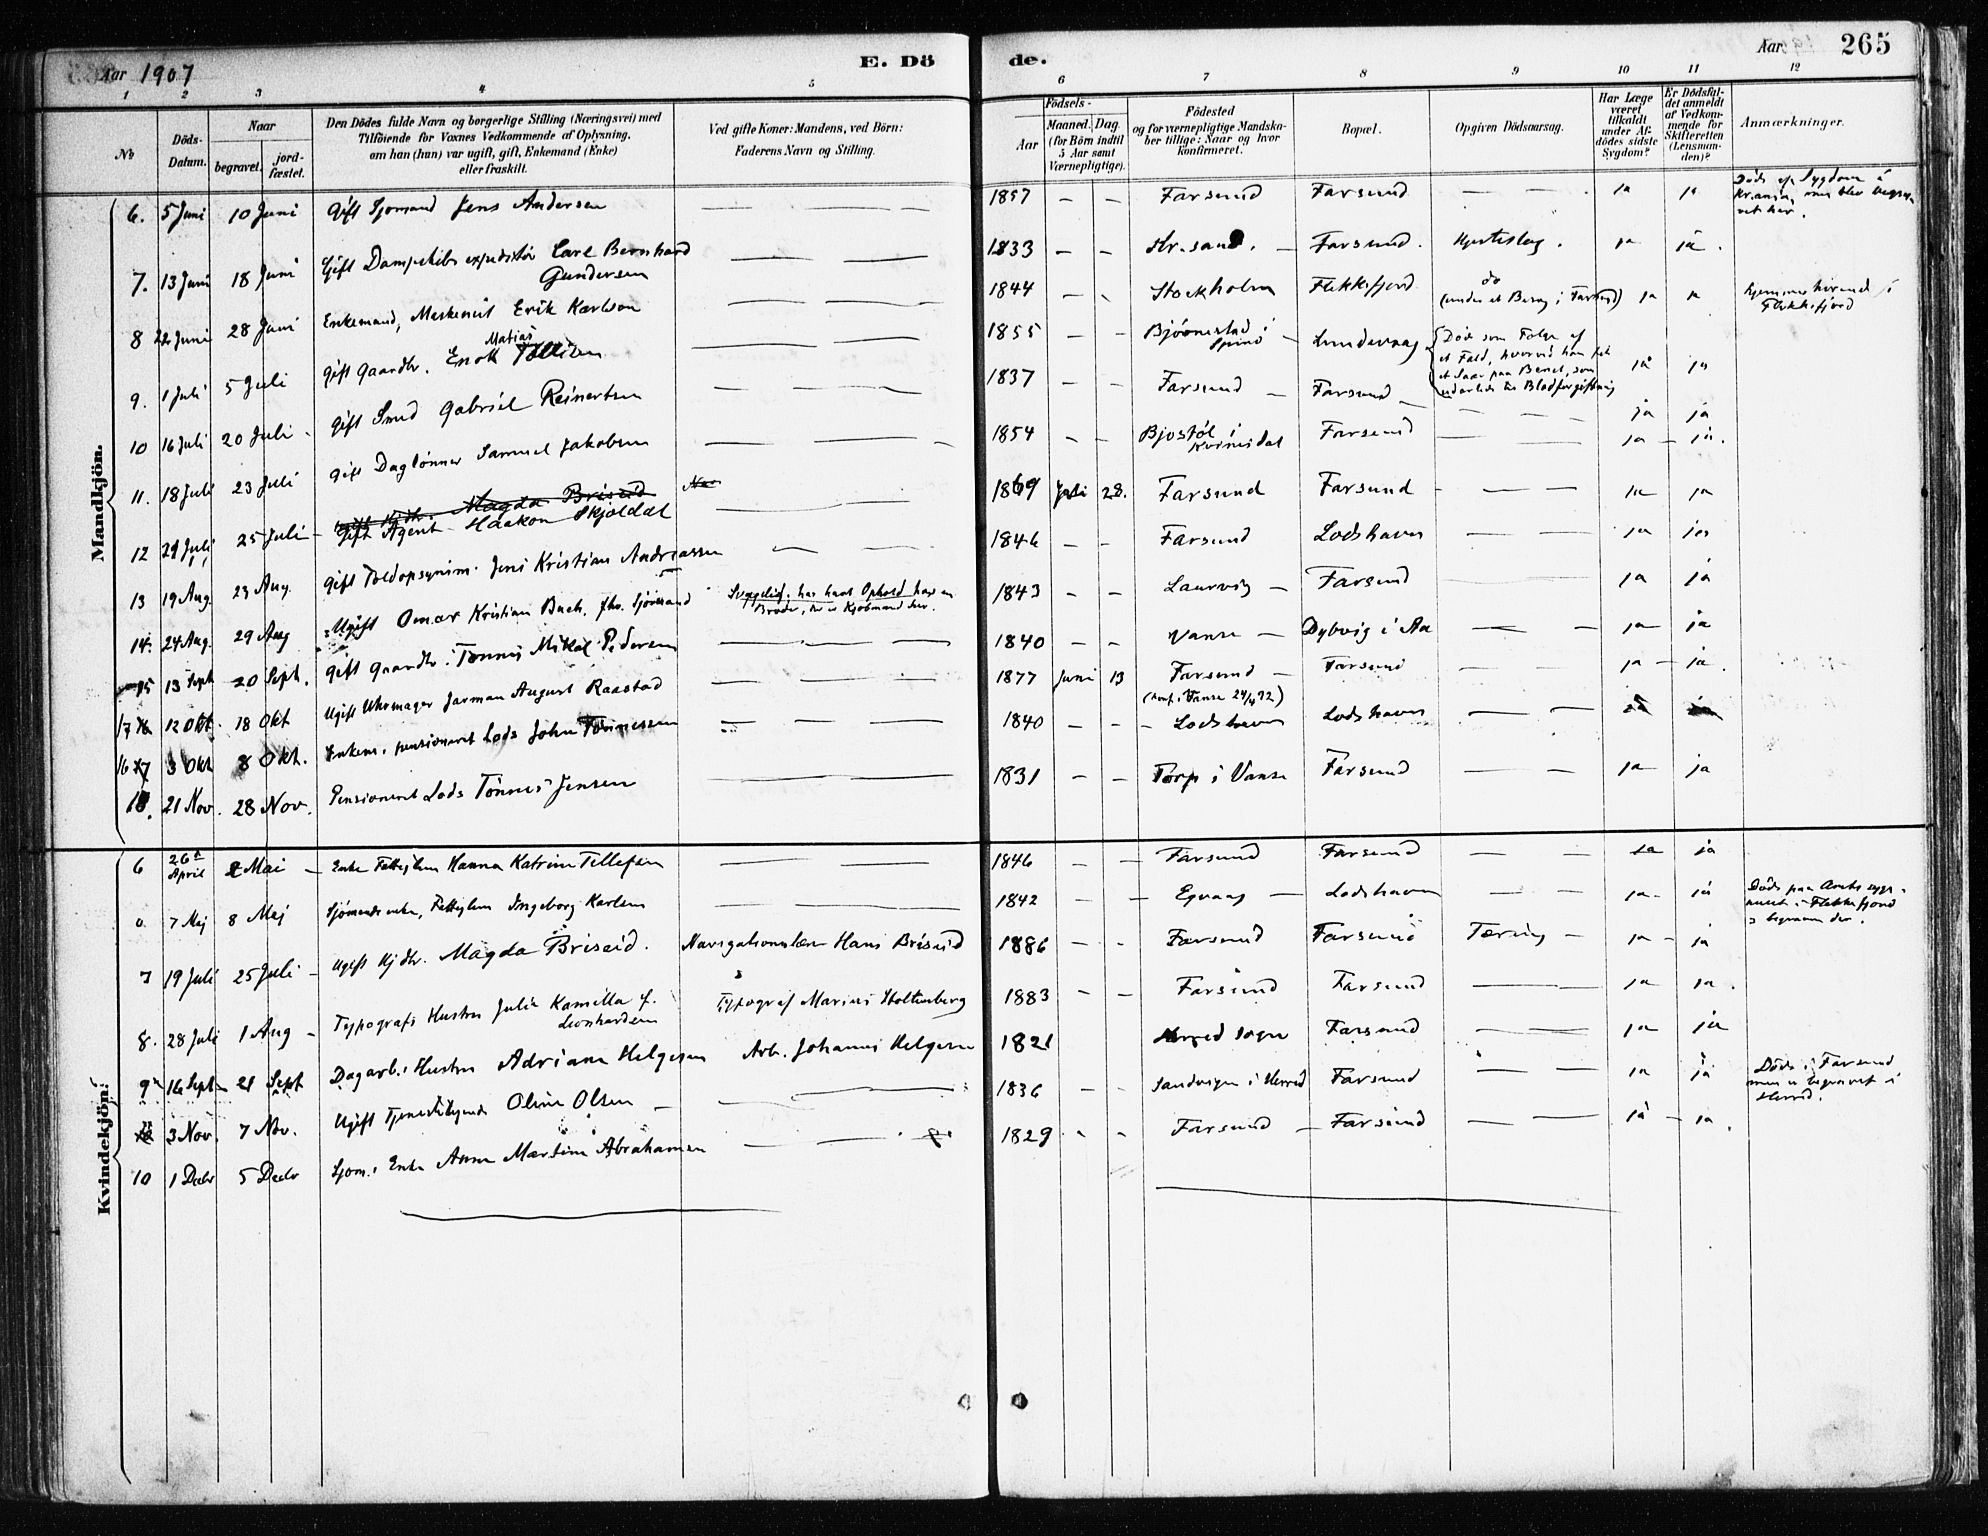 Aar 1907
E. Dö
de.
Aar
265
1 2 3 4 5 6 7 8 9 10 11 12
No
Döds-Datum.
Naar
begravet.
jord-fæstet.
Den Dödes fulde Navn og borgerlige Stilling (Næringsvei) med
Tilföiende for Voxnes Vedkommende af Oplysning,
om han (hun) var ugift, gift, Enkemand (Enke)
eller fraskilt.
Ved gifte Koner: Mandens, ved Börn:
Faderens Navn og Stilling.
Födsels-
Aar
Maaned. Dag
(for Börn indtil
5 Aar samt
Værnepligtige).
Födested
og for værnepligtige Mandska-
ber tillige: Naar og hvor
konfirmeret.
Bopæl.
Opgiven Dödsaarsag.
Har Læge
været
tilkaldt
under Af-
dödes sidste
Sygdom?
Er Dödsfal-
det anmeldt
af Vedkom-
mende for
Skifteretten
(Lensman-
den)?
Anmærkninger.
Mandkjön.
6. 5 Juni 10 Juni Gift Sjømand Jens Andersen — — 1857 – – Farsund Farsund — – ja ja Døde af Sygdom i
Kr.ania, men blev begra-
vet her.
7. 13 Juni 18 Juni Gift Dampskibsexpeditør Carl Bernhard
Gundersen — — 1833 – – Kr.sand. – Farsund. Hjerteslag. ja ja.
8 22 Juni 28 Juni Enkemand, Maskinist Erik Karlson — — 1844 – – Stockholm Flekkefjord do
(under et Besøg i Farsund) ja ja hjemmehørende i
Flekkefjord
9. 1 Juli 5 Juli Gift Gaardbr. Enok Matias Tollisen — — 1855 – – Bjørnestad i
Spind – Lundevaag Døde som Følge af
et Fald, hvorved han fik
et Saar paa Benet, som
udartede til Blodforgiftning ja ja
10 16 Juli 20 Juli – Gift Smed Gabriel Reinertsen — — 1837 – – Farsund – Farsund – – — – ja ja
11. 18 Juli 23 Juli Gift Daglønner Samuel Jakobsen — — – 1854 – – Bjostøl i
Kvinesdal Farsund — — ja – ja.
Magda Briseid
12 21 Juli 25 Juli – Gift Agent Haakon Skjoldal — — 1869 Juli 28. Farsund Farsund – — — ja ja
13 19 Aug. 23 Aug. Gift Toldopsynsm. Jens Kristian Andreassen — — 1846 – – Farsund Lodshavn — — ja ja
14. 24 Aug. 29 Aug Ugift Omar Kristian Buch. fhv. Sjømand Svagelig. har havt Ophold hos en
Broder, der er Kjøbmand her. 1843 – – Laurvig – Farsund — — ja ja
15 13 Sept 20 Sept. Gift Gaardbr. Tønnes Mikal Pedersen — — — 1840 – – Vanse – Dybvig i Aa — – ja – ja
17 12 Okt. 18 Okt Ugift Uhrmager Jarman August Raastad — — — 1877 Juni 13 Farsund –
(konf. i Vanse 24/4 92) Farsund — – ja – ja.
16 3 Okt 8 Okt. Enkem. pensioneret Lods John Tønnessen — — — 1840 – – – Lodshavn Lodshavn — — ja ja
18. 21 Nov. 28 Nov. Pensioneret Lods Tönnes Jensen — — — 1831 – – Torp i Vanse Farsund — – ja – ja
Kvindekjön.
6 26de
April 2 Mai – Enke Fattiglem Hanna Katrine Tellefsen — — 1846 – – Farsund Farsund — – ja ja
7 Maj 8 Maj Sjømandsenke, Fattiglem Ingeborg Karlsen — — 1842 – – Egvaag – Lodshavn — – ja – ja Døde paa Amtssyge-
huset i Flekkefjord
o begraven der.
7 19 Juli 25 Juli – Ugift Magda Briseid. Navigationslærer Hans Briseid 1886 – – Farsund Farsund Tæring – ja – ja
8. 28 Juli 1 Aug – Typografs Hustru Julia Kamilla f.
Leonhardsen Typograf Marius Stoltenberg 1883 – – Farsund Farsund — — ja ja.
9 16 Sept – 21 Sept Dagarb. Hustru Adriane Helgesen Arb. Johannes Helgesen 1821 Herred Sogn Farsund — — ja ja
3 Nov. 7 Nov. Ugift Oline Olsen – — — 1836 – – Sandvigen i Herred Farsund — — ja ja Døde i Farsund
men er begravet i
Herred.
10 1 Decbr 5 Decbr Sjøm. Enke Anne Martine Abrahamsen — — 1829 – – Farsund – Farsund — — ja – ja.